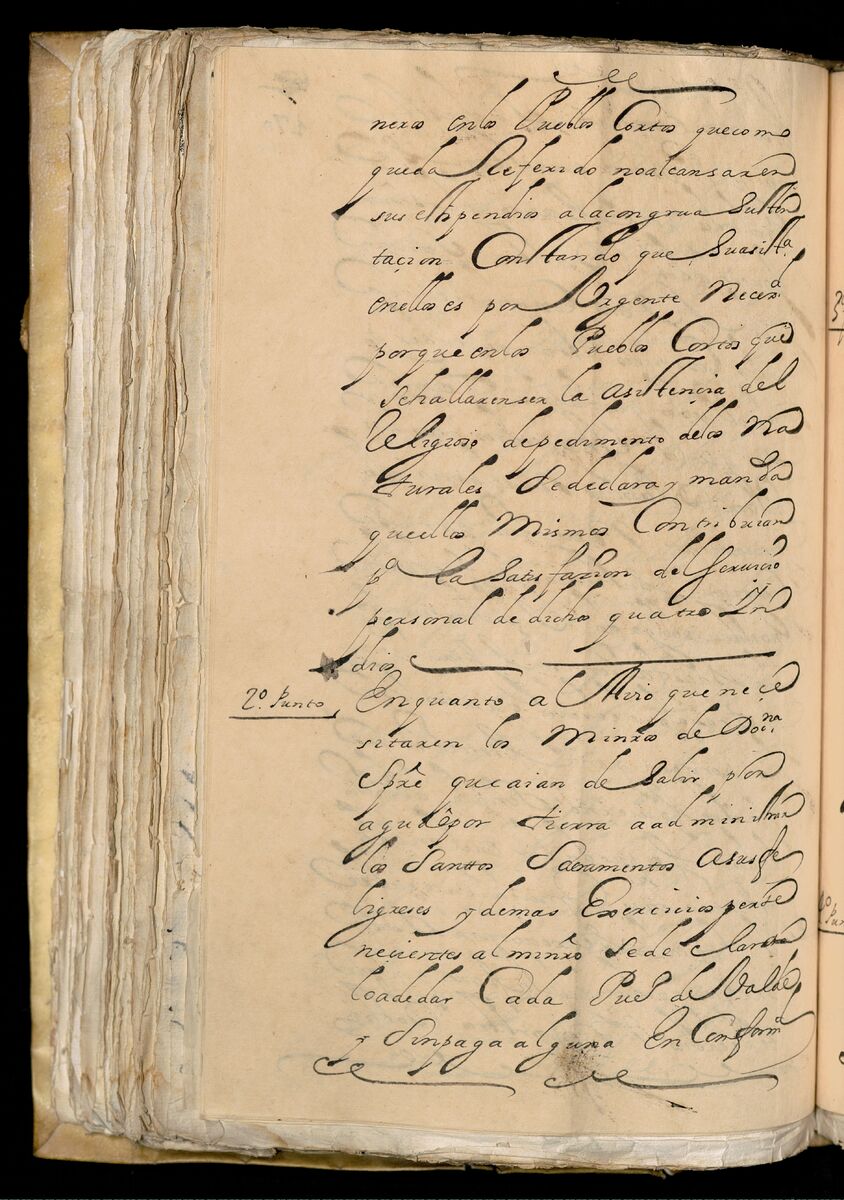 neros en los Pueblos Cortos que como
queda Referido no alcansaren
sus estipendios a la congrua Susten
taçion Constando que Su asista
en ellos es por Urgente Necesd
porque en los Pueblos Cortos que
se hallaren ser la asistençia del
Religioso de pedimento de los Na
turales Se declara y manda
que ellos Mismos Contribuian
pa la Satisfaon del Seruicio
personal de dichos quatro In
dios
2o. Punto
En quanto a Avio que neçe
sitaren los Minros de Docna
Spre que aian de Salir por
agua o por tierra a administrar
los Santtos Sacramentos a sus fe
ligreses y demas Exercicios perte
neçientes al minro Se declara
lo a de dar Cada Puo de Valde
y Sin paga alguna En Conformd